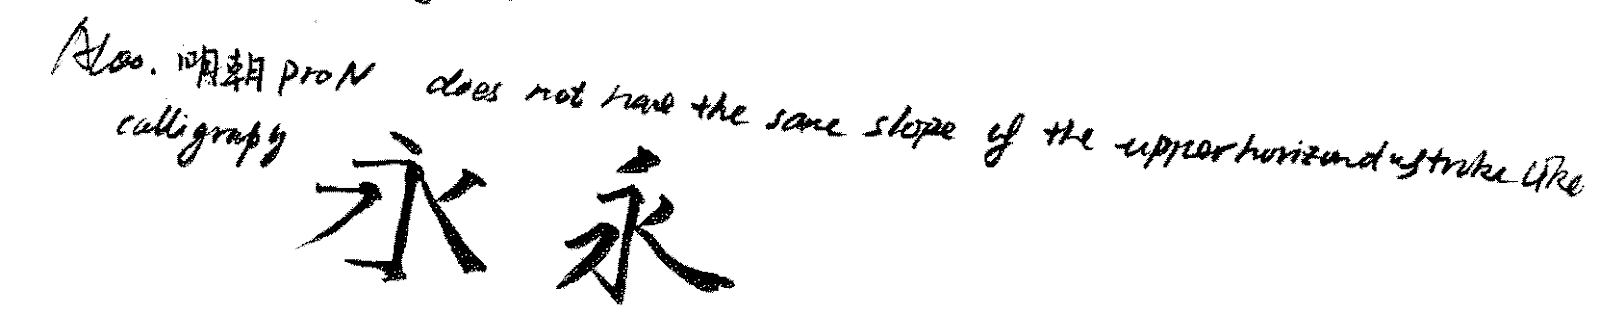 Also. 明朝 proN does not have the same slope of the upper horizontal stroke like
calligrapy
永 永